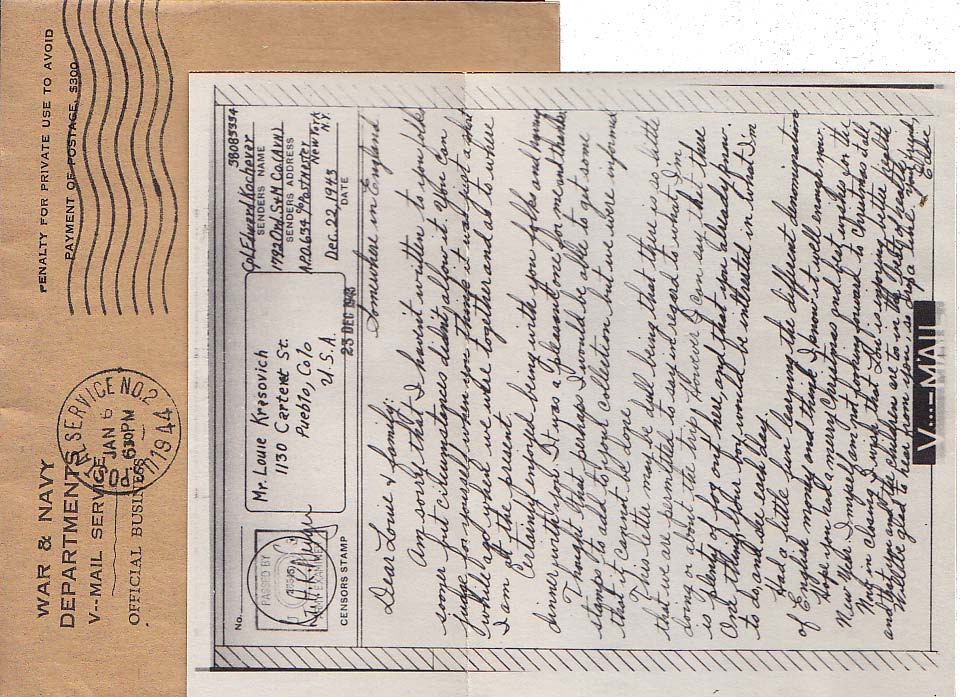 PENALTY FOR PRIVATE USE TO AVOID
PAYMENT OF POSTAGE, $300
WAR & NAVY
DEPARTMENTS
V--MAIL SERVICE
OFFICIAL BUSINESS
SERVICE NO. 2
JAN 6
630PM
1944
No.
PASSED BY
ARMY EXAMINER
CENSORS STAMP
Mr. Louie Krasovich
1130 Carteret St.
Pueblo, Colo
U.S.A.
23 DEC 1943
38085554
Cpl Edward Kochovar
SENDERS NAME
1792 Ord. S+M Co. (AVN)
SENDERS ADDRESS
APO 639 % Postmaster
New York
N.Y.
Dec. 22, 1943
DATE
Somewhere in England
Dear Louie & family:
Am sorry that I havent written to you folks
sooner but circumstances didnt allow it. You can
judge for yourself when you think it was just a short
while ago when we where together and as to where
I am at the present.
Certainly enjoyed being with you folks and having
dinner with you. It was a pleasant one for me and thanks.
Thought that perhaps I would be able to get some
stamps to add to your collection but we were informed
that it cannot be done.
This letter may be dull being that there is so little
that we are permitted to say in regard to what I'm
doing or about the trip. However I can say that there
is plenty of fog out here, and that you already know.
One thing Louie you would be interested in what I'm
to do, and like each day.
Had a little fun learning the different denomination
of English money and think I know it well enough now.
Hope you had a merry Christmas and best wishes for the
New Year. I myself am not looking forward to Christmas at all.
Now in closing I wish that Lou is improving a little
and that you and the children are in the best of health
Will be glad to hear from you so drop a line. Your friend,
Eddie
V...-MAIL